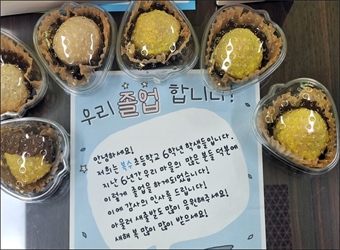 우리 졸업 합니다!
안녕하세요!
저희는 복수초등학교 6학년 학생들입니다.
지난 6년간 우리 마을의 많은 분들 덕분에
이렇게 졸업을 하게되었습니다!
이에 감사의 인사를 드립니다!
아울러 새출발도 많이 응원해주세요!
새해 복 많이 많이 받으세요!